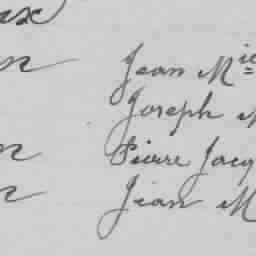 ux
n Jean Mie
Joseph M
n Pierre Jacq
n Jean M